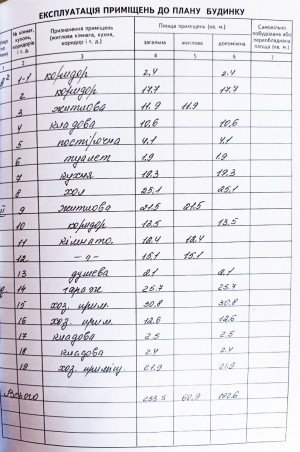 ЕКСПЛУАТАЦІЯ ПРИМІЩЕНЬ ДО ПЛАНУ БУДИНКУ
№ кімнат, кухонь, коридорів і т. д. Призначення приміщень (житлова кімната, кухня, коридор і т. д.) Площа приміщень (кв. м.) Самовільно побудована або переобладнана площа (кв. м.)
загальна житлова допоміжна
1 2 3 4 5 6 7
1-1 коридор 2,4 2.4
2 коридор 17.7 17.7
3 житлова 11.9 11.9
4 кладова 10,6 10,6
5 постірочна 4.1 4.1
6 туалет 1.9 1.9
7 кухня 19.3 19.3
8 хол 25,1 25,1
ІІ 9 житлова 21.5 21.5
10 коридор 13.5 13.5
11 кімната 12.4 12.4
12. -"- 15.1 15.1
13 душева 2.1 2.1
14 гараж 25.7 25.7
15 хоз. прим. 30,8 30.8
16 хоз. прим. 12.6 12.6
17 кладова 2.5 2.5
18 кладова 2.4 2.4
19 хоз. приміщ. 21.9 21.9
Всього 253.5 60,9 192.6